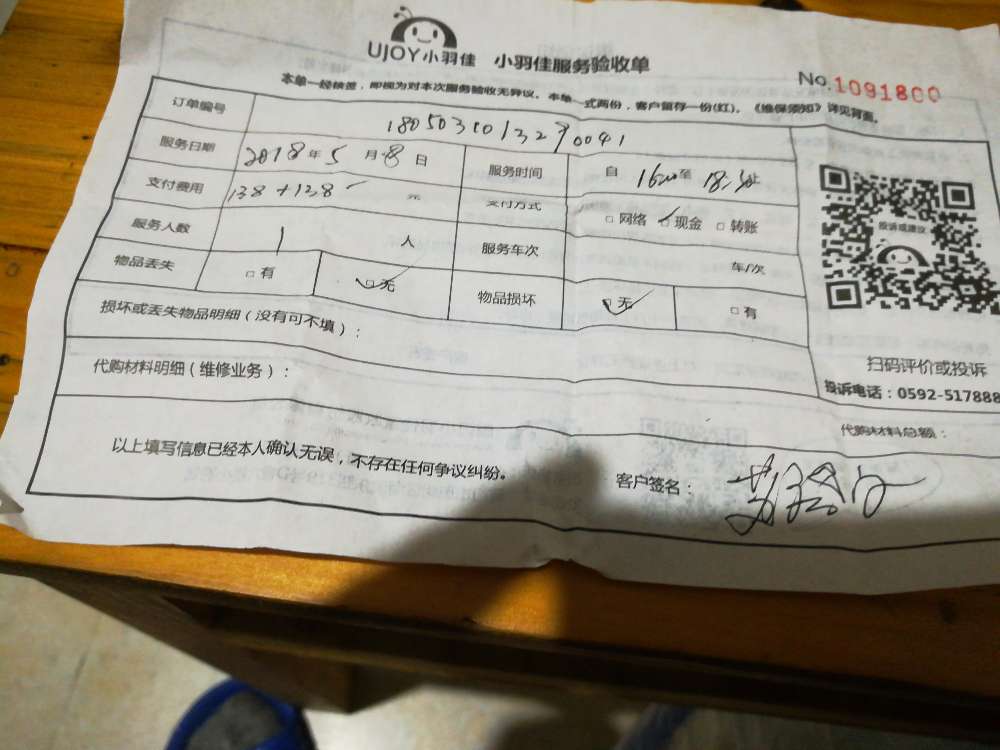 UJOY小羽佳 小羽佳服务验收单
No.1091800
本单一经核签，即视为对本次服务验收无异议。本单一式两份，客户留存一份(红)。《维保须知》详见背面。
订单编号 18050310132790041
服务日期 2018年5月8日 服务时间 自 1600 至 18:30 止
支付费用 138+138 元 支付方式 □网络 ☑现金 □转账
服务人数 1 人 服务车次 车/次
物品丢失 □有 ☑无 物品损坏 ☑无 □有
投诉或建议
损坏或丢失物品明细（没有可不填）：
扫码评价或投诉
代购材料明细（维修业务）：
投诉电话：0592-517888
代购材料总额：
以上填写信息已经本人确认无误，不存在任何争议纠纷。
客户签名：